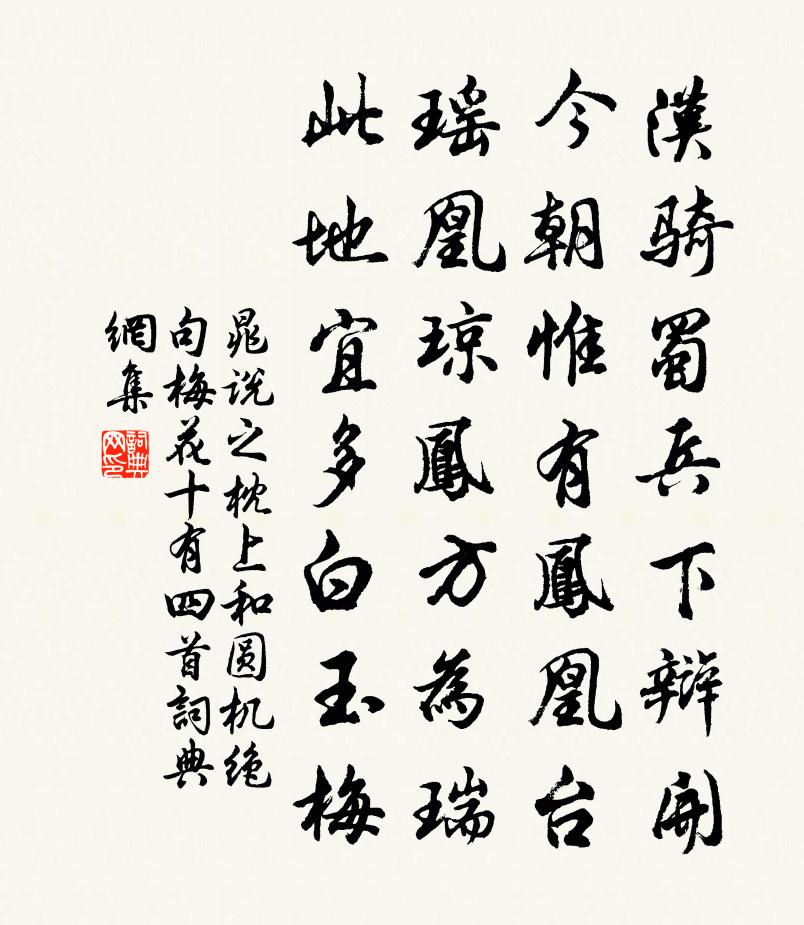 漢騎蜀兵下辯開
今朝惟有鳳凰台
瑶凰琼鳳方為瑞
此地宜多白玉梅
晁说之枕上和圆机绝
句梅花十有四首詞典
網集
詞典网印